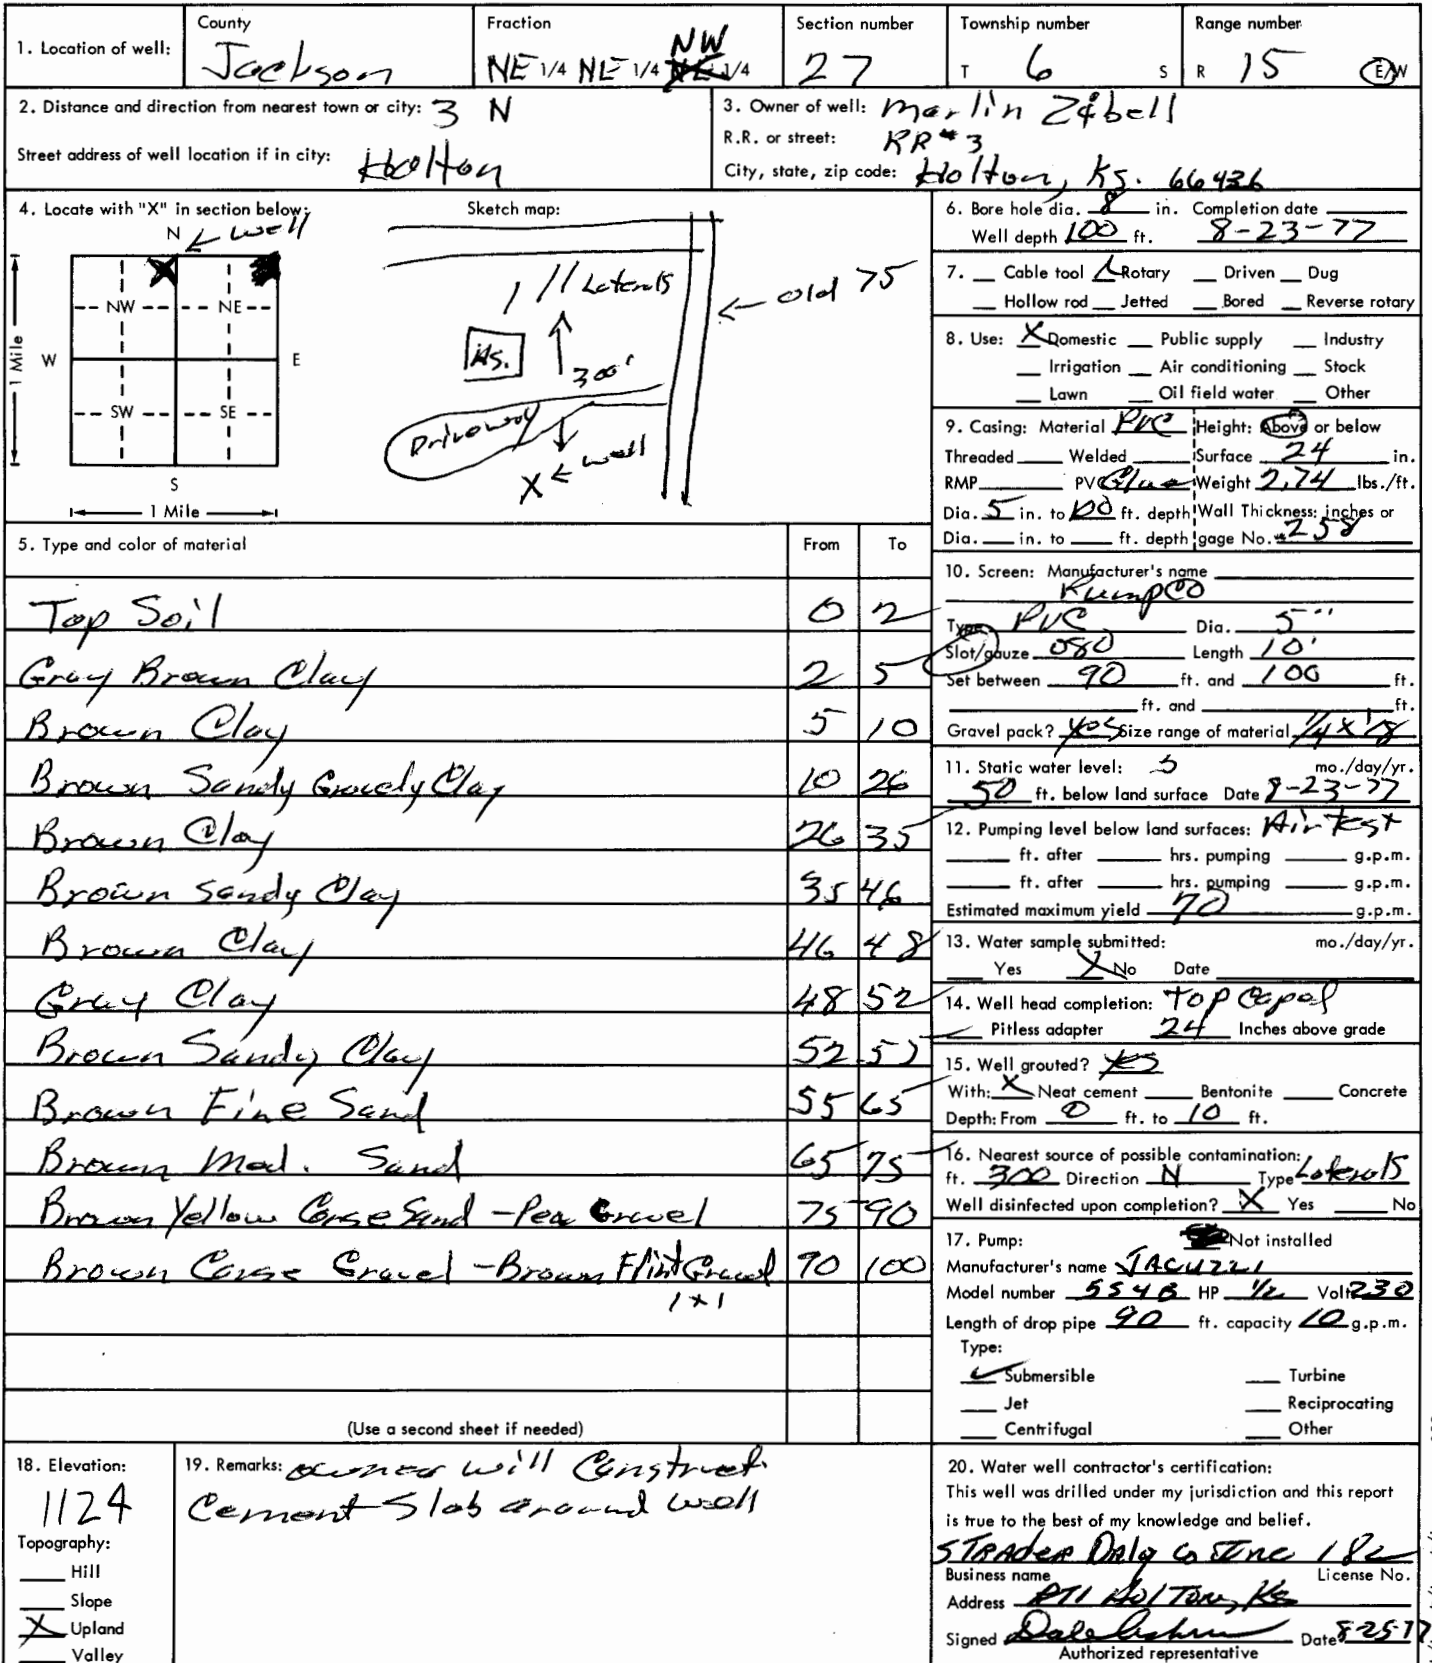 1. Location of well: County Jackson Fraction NE 1/4 NE 1/4 NW 1/4 Section number 27 Township number T 6 S Range number R 15 E/W
2. Distance and direction from nearest town or city: 3 N
Street address of well location if in city: Holton
3. Owner of well: Marlin Zibell
R.R. or street: RR#3
City, state, zip code: Holton, Ks. 66436
4. Locate with "X" in section below: Sketch map:
N ← well
NW NE
W E
SW SE
S
1 Mile
1 Mile
Laterals
← old 75
Hs.
300'
Driveway
X ← well
5. Type and color of material From To
Top Soil 0 2
Gray Brown Clay 2 5
Brown Clay 5 10
Brown Sandy Gravely Clay 10 26
Brown Clay 26 35
Brown Sandy Clay 35 46
Brown Clay 46 48
Gray Clay 48 52
Brown Sandy Clay 52 55
Brown Fine Sand 55 65
Brown Med. Sand 65 75
Brown Yellow Corse Sand - Pea Gravel 75 90
Brown Corse Gravel - Brown Flint Gravel 90 100
1x1
(Use a second sheet if needed)
6. Bore hole dia. 8 in. Completion date
Well depth 100 ft. 8-23-77
7. Cable tool Rotary Driven Dug
Hollow rod Jetted Bored Reverse rotary
8. Use: X Domestic Public supply Industry
Irrigation Air conditioning Stock
Lawn Oil field water Other
9. Casing: Material PVC Height: Above or below
Threaded Welded Surface 24 in.
RMP PVC Glue Weight 2.74 lbs./ft.
Dia. 5 in. to 100 ft. depth Wall Thickness: inches or
Dia. in. to ft. depth gage No. .258
10. Screen: Manufacturer's name
Type PVC Dia. 5"
Slot/gauze 080 Length 10'
Set between 90 ft. and 100 ft.
ft. and ft.
Gravel pack? yes Size range of material 1/4 x 1/8
11. Static water level: mo./day/yr.
50 ft. below land surface Date 8-23-77
12. Pumping level below land surfaces: Air Test
ft. after hrs. pumping g.p.m.
ft. after hrs. pumping g.p.m.
Estimated maximum yield 70 g.p.m.
13. Water sample submitted: mo./day/yr.
Yes X No Date
14. Well head completion: Top Caped
Pitless adapter 24 Inches above grade
15. Well grouted? yes
With: X Neat cement Bentonite Concrete
Depth: From 0 ft. to 10 ft.
16. Nearest source of possible contamination:
ft. 300 Direction N Type Laterals
Well disinfected upon completion? X Yes No
17. Pump: Not installed
Manufacturer's name JACUZZI
Model number 5S4B HP 1/2 Volt 230
Length of drop pipe 90 ft. capacity 10 g.p.m.
Type:
Submersible Turbine
Jet Reciprocating
Centrifugal Other
18. Elevation:
1124
Topography:
Hill
Slope
X Upland
Valley
19. Remarks: owner will Construct
Cement Slab around well
20. Water well contractor's certification:
This well was drilled under my jurisdiction and this report
is true to the best of my knowledge and belief.
STRADER Drlg Co Inc 182
Business name License No.
Address RT1 HOLTON, KS
Signed Date 8-25-77
Authorized representative